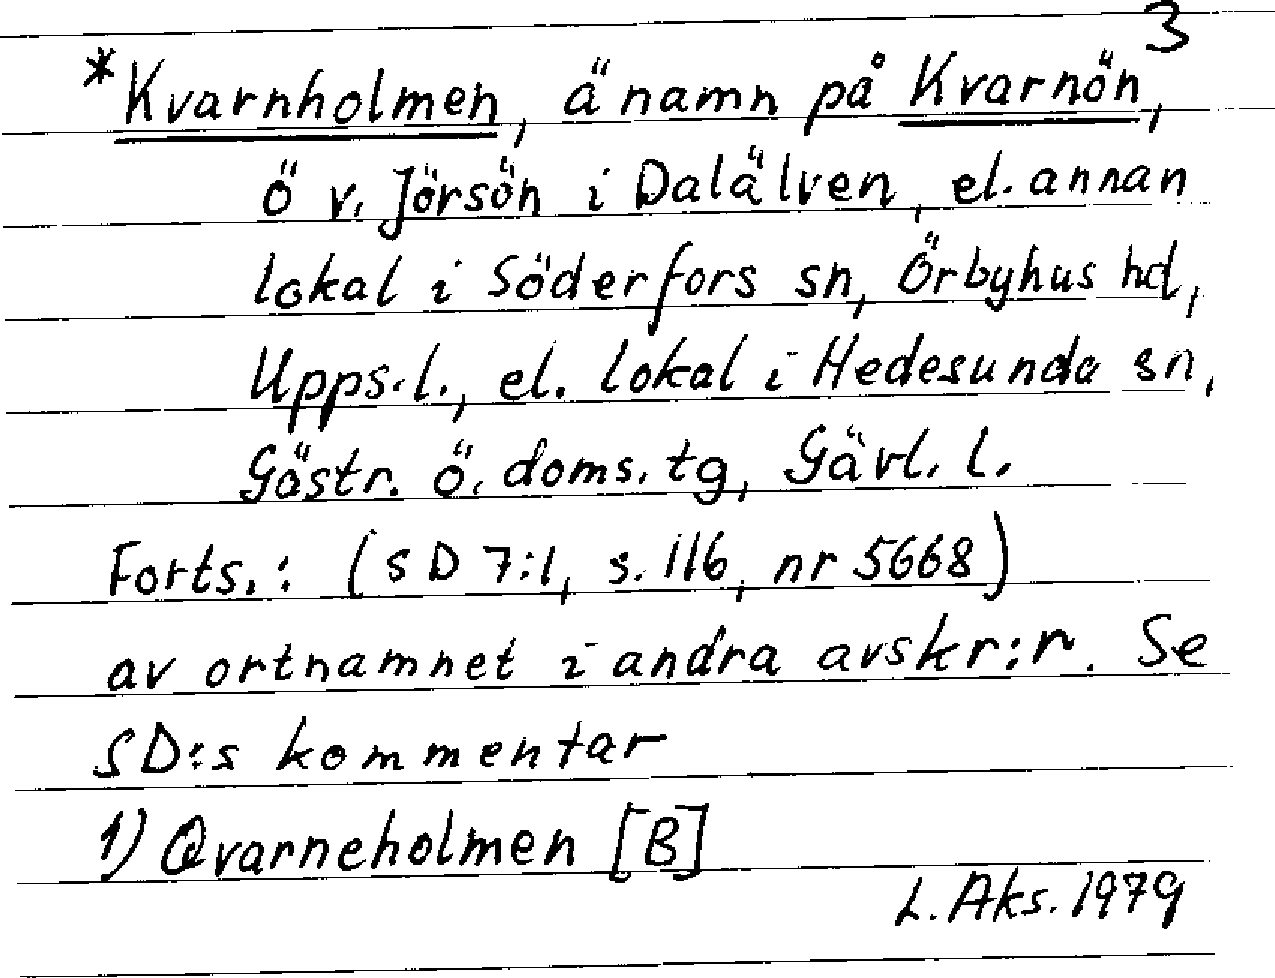 3
*Kvarnholmen, änamn på Kvarnön,
ö v. Jörsön i Dalälven, el. annan
lokal i Söderfors sn, Örbyhus hd,
Upps.l., el. lokal i Hedesunda sn,
Gästr. ö. doms. tg, Gävl. l.
Forts.: (SD 7:1, s. 116, nr 5668)
av ortnamnet i andra avskr:r. Se
SD:s kommentar
1) Qvarneholmen [B]
L. Aks. 1979